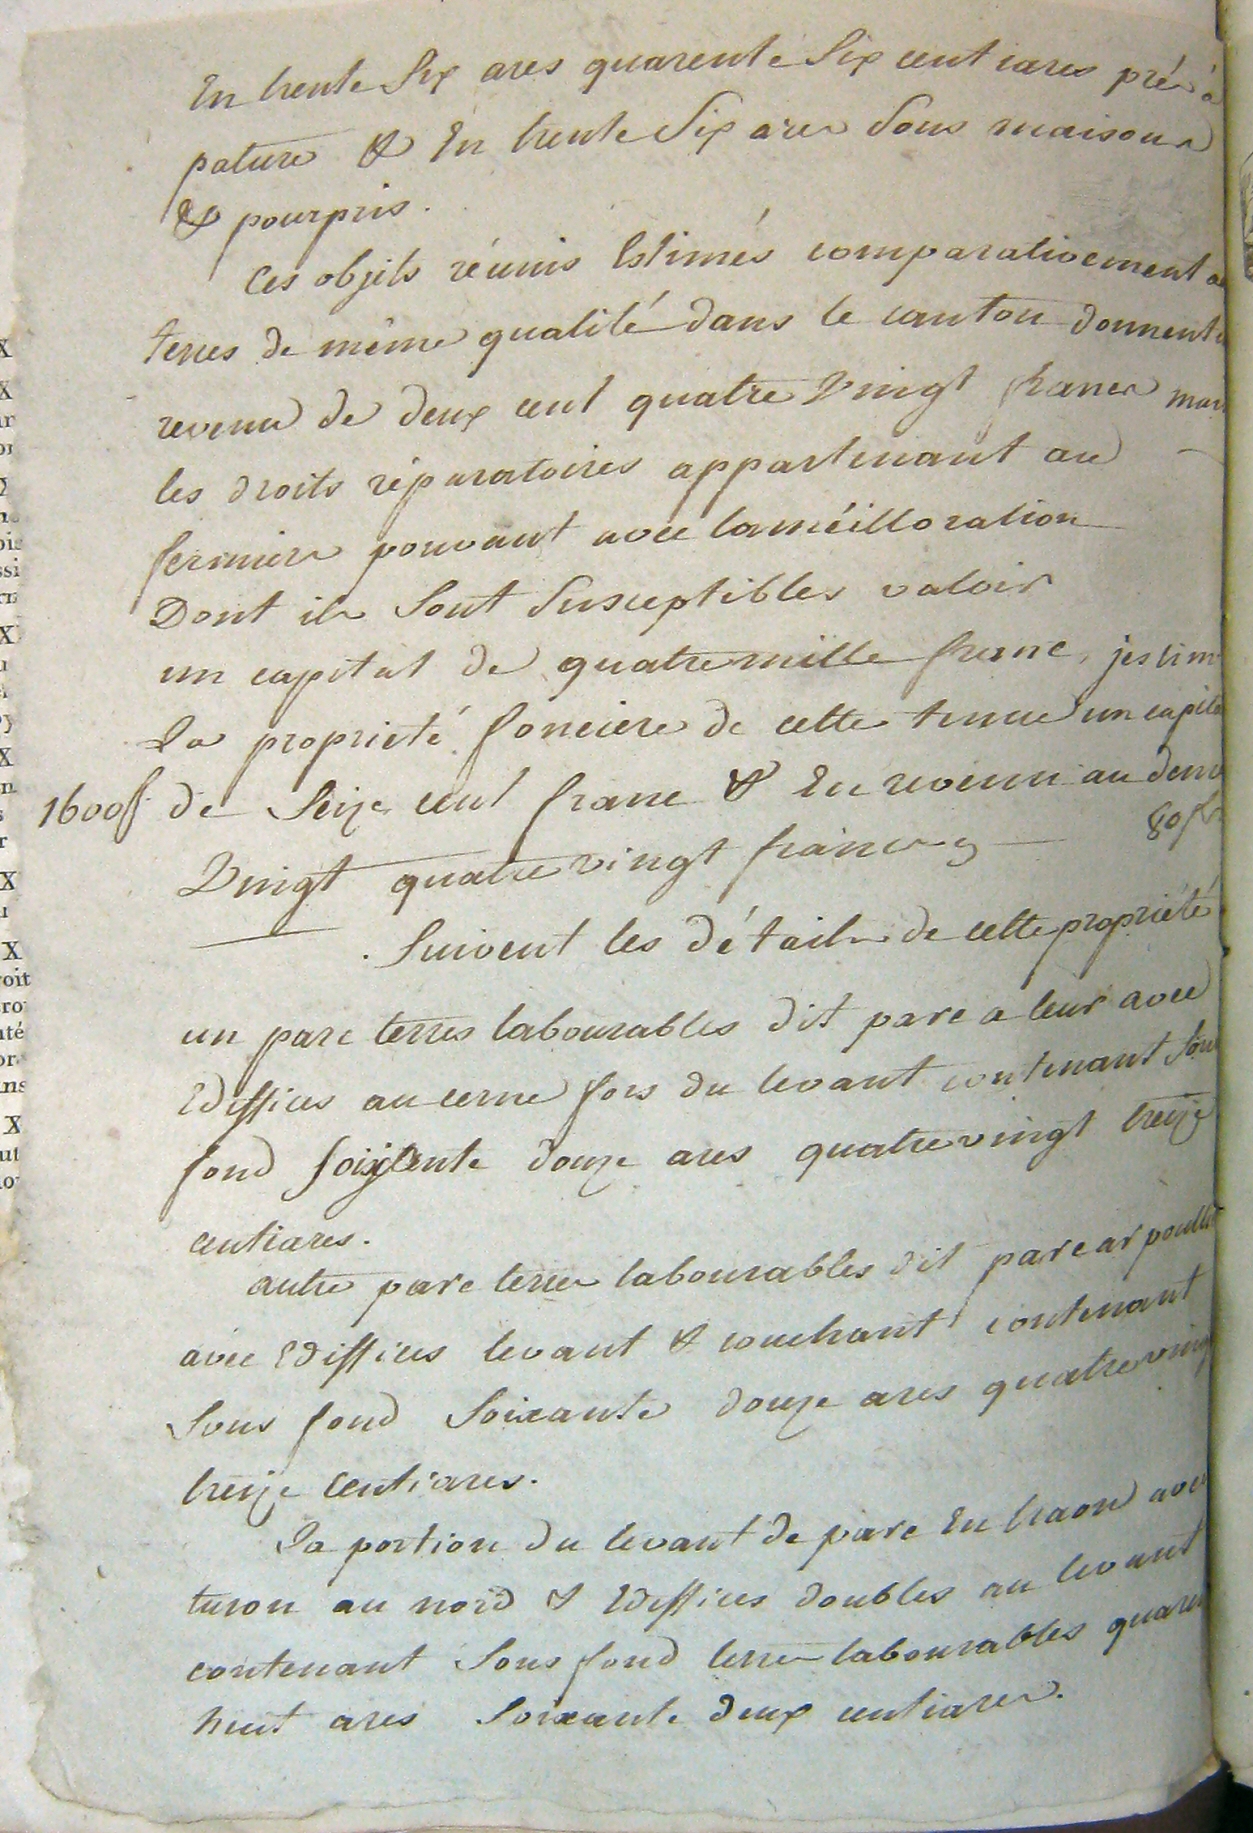 En trente six ares quarente six centiares pré à
pature & En trente six ares sous maisons
& pourpris.
Ces objets réunis Estimés comparativement
terres de même qualité dans le canton donnent
revenu de deux cent quatre Vingt francs mais
les droits réparatoires appartenant au
fermier pouvant avec laméilloration
Dont ils sont susceptibles valoir
un capital de quatre mille franc, jestime
La propriété fonciere de cette tenue un capital
1600f de seize cent franc & En revenu au denier
Vingt quatre vingt francs 80f
Suivent les détails de cette propriété
un parc terres labourables dit parc a leur avec
Ediffices au cerne fors du levant contenant sous
fond soixtente douze ares quatre vingt treize
centiares.
autre parc terres labourables dit parc ar poulle
avec Ediffices levant & couchant contenant
sous fond soixante douze ares quatre vingt
treize centiares.
La portion du levant de parc En traon avec
turon au nord & Ediffices doubles au levant
contenant sous fond terres labourables quarente
huit ares soixante deux centiares.